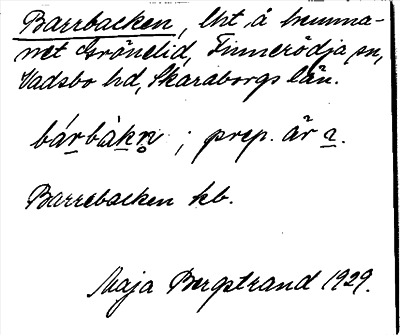 Barrbacken, lht å hemma-
net Grönelid, Finnerödja sn,
Vadsbo hd, Skaraborgs län.
bárbàkn̥ ; prep. är a.
Barrebacken kb.
Maja Bergstrand 1929.